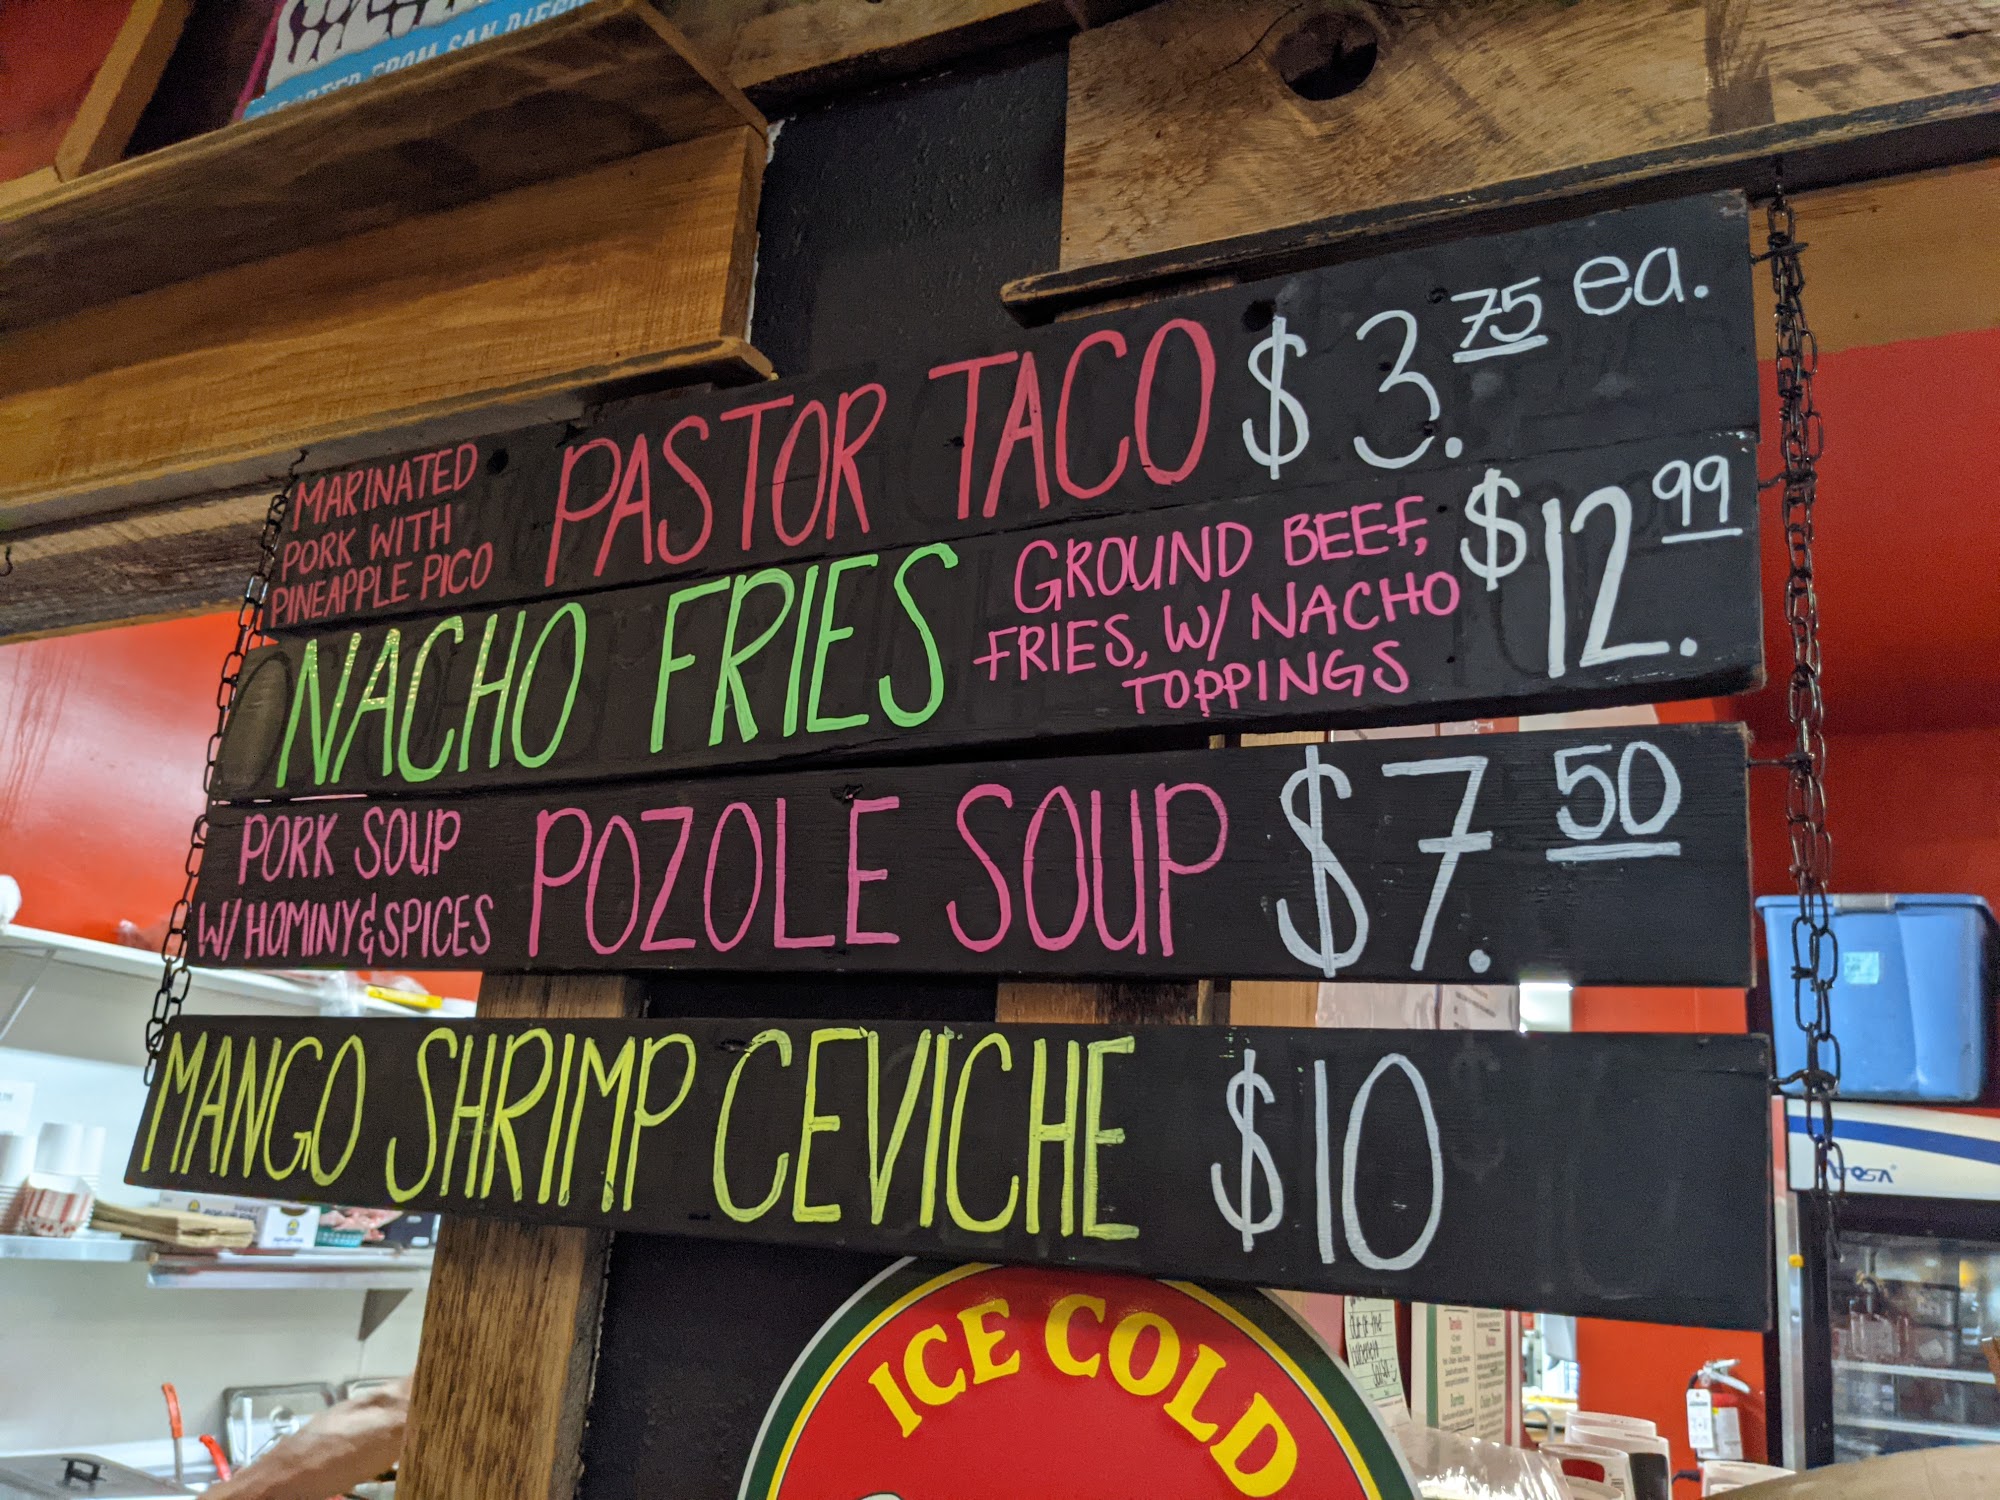 FROM SAN DIEGO
MARINATED
PORK WITH
PINEAPPLE PICO
PASTOR TACO $3.75 ea.
NACHO FRIES
GROUND BEEF,
FRIES, W/ NACHO
TOPPINGS
$12.99
PORK SOUP
W/ HOMINY & SPICES
POZOLE SOUP $7.50
MANGO SHRIMP CEVICHE $10
ICE COLD